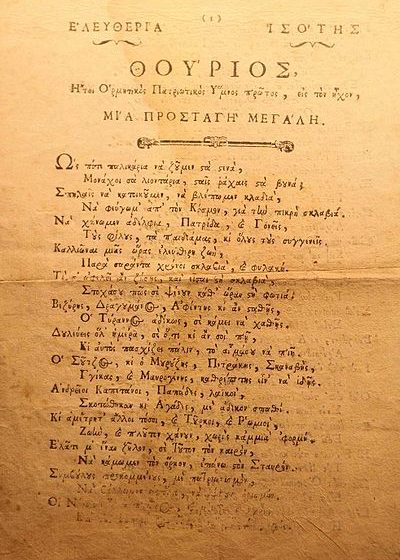 (1)
ΕʼΛΕΥΘΕΡΙΑ ΙΣΟʹΤΗΣ
ΘΟΥΡΙΟΣ,
Ηʹτοι Οʹρμητικὸς Πατριωτικὸς Υʹμνος πρῶτος, εἰς τὸν ἦχον,
ΜΙʹΑ ΠΡΟΣΤΑΓΗʹ ΜΕΓΑΛΗ.
Ωʹς πότε παλικάρια νὰ ζῦμεν στὰ στενὰ,
Μονάχοι σὰ λιοντάρια, σταῖς ῥάχαις στὰ βυνά;
Σπηλιαῖς νὰ κατοικῦμεν, νὰ βλέπωμεν κλαδιὰ,
Νὰ φεύγωμʼ ἀπʼ τὸν Κόσμον, γιὰ τὴν πικρὴ σκλαβιά.
Νὰ χάνωμεν ἀδέλφια, Πατρίδα, ϗ Γονεῖς,
Τὺς φίλυς, τὰ παιδιάμας, κι ὅλυς τὺς συγγενεῖς.
Καλλίοναι μιᾶς ὥρας ἐλεύθερη ζωὴ,
Παρὰ σαράντα χρόνοι σκλαβιὰ, ϗ φυλακή.
Τί σʼ ὠφελεῖ ἂν ζήσῃς, καὶ εἶσαι στὴ σκλαβιὰ,
Στοχάσυ πῶς σὲ ψένυν καθʼ ὥραν στὴ φωτιά;
Βεζύρης, Δραγυμάνος, Αʼφέντης κι ἂν σταθῇς,
Οʹ Τύραννος ἀδίκως, σὲ κάμει νὰ χαθῇς.
Δυλεύεις ὅλʼ ἡμέρα, σὲ ὅ,τι κι ἂν σοὶ πῇ,
Κι αὐτὸς πασχίζει πάλιν, τὸ αἷμα συ νὰ πιῇ.
Οʹ Σύτζος, κι ὁ Μυρύζης, Πετράκης, Σκαναβῆς,
Γγίκας, ϗ Μαυρογένης, καθρέπτης εἶνʼ νὰ ἰδῇς.
Αʼνδρεῖοι Καπετάνοι, Παπάδες, λαϊκοὶ,
Σκοτώθηκαν κι Αʼγάδες, μὲ ἄδικον σπαθί.
Κι ἀμέτρητʼ ἄλλοι τόσοι, ϗ Τῦρκοι, ϗ Ρʹωμιοὶ,
Ζωὴν, ϗ πλῦτον χάνυν, χωρὶς καμμιὰ ʼφορμή.
Εʼλᾶτε μʼ ἕναν ζῆλον, σὲ τῦτον τὸν καιρὸν,
Νὰ κάμωμεν τὸν ὅρκον, ἐπάνω στὸν Σταυρόν.
Συμβύλυς προκομμένυς, μὲ πατριωτισμὸν,